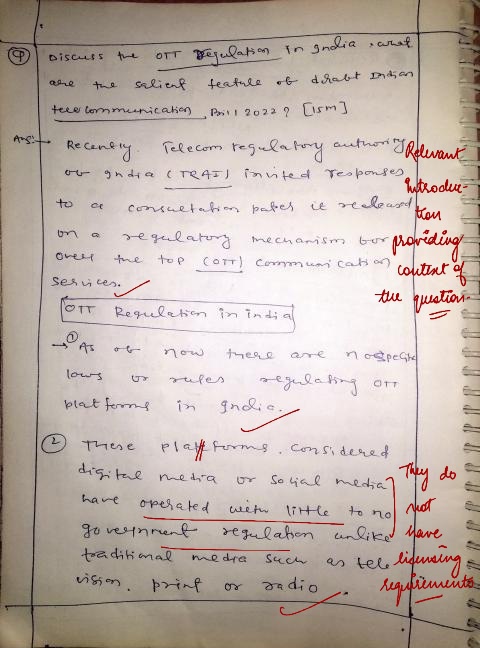 Q Discuss the OTT Regulation in India. what
are the salient feature of drabt Indian
telecommunication Bill 2022? [15M]
Ans:→ Recently. Telecom regulatory authority
of India (TRAI) invited responses
to a consultation paper it released
on a regulatory mechanism for
over the top (OTT) communication
services.
Relevant
introduc-
tion
providing
context of
the question.
OTT Regulation in india
→ ① As of now there are no spefic
laws or rules regulating OTT
platforms in India.
② These platforms. considered
digital media or social media
have operated with little to no
government regulation unlike
traditional media such as tele
vision. print or radio.
They do
not
have
licensing
requirements